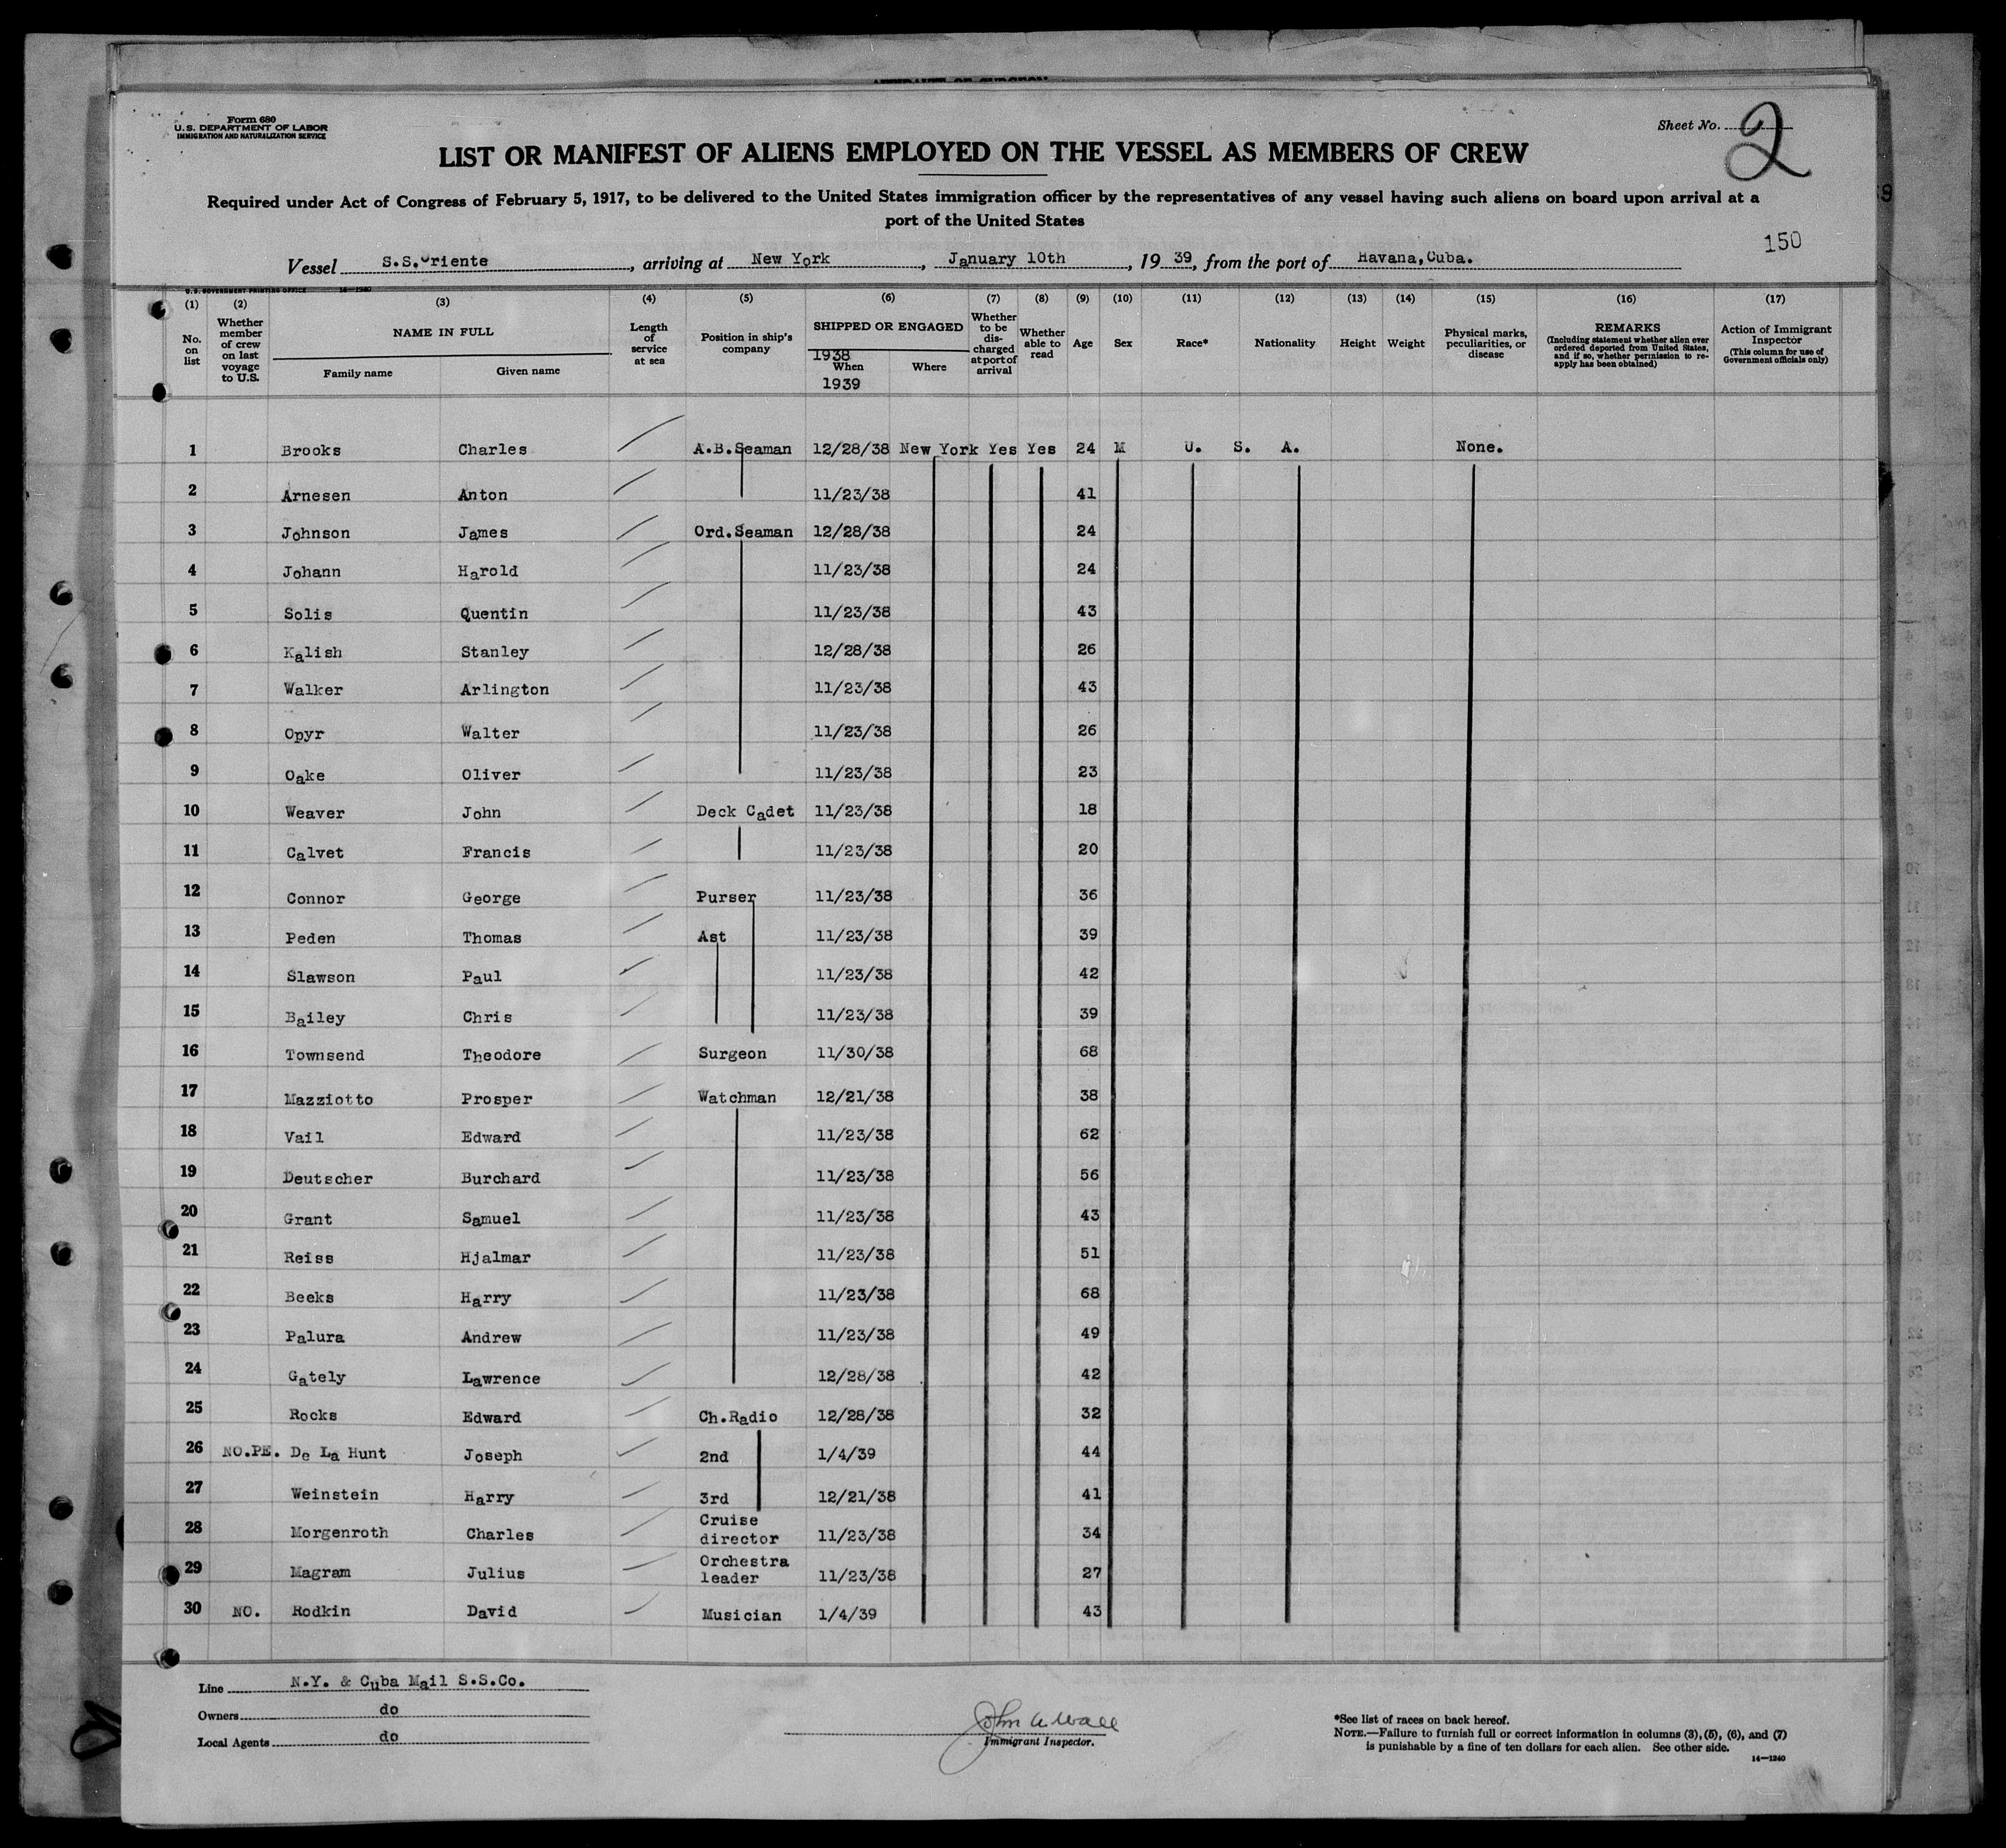 Form 680
U.S. DEPARTMENT OF LABOR
IMMIGRATION AND NATURALIZATION SERVICE
Sheet No. 2
LIST OR MANIFEST OF ALIENS EMPLOYED ON THE VESSEL AS MEMBERS OF CREW
Required under Act of Congress of February 5, 1917, to be delivered to the United States immigration officer by the representatives of any vessel having such aliens on board upon arrival at a
port of the United States
150
Vessel S.S.Oriente, arriving at New York, January 10th, 19 39, from the port of Havana,Cuba.
U.S. GOVERNMENT PRINTING OFFICE 14—1240
(1) (2) (3) (4) (5) (6) (7) (8) (9) (10) (11) (12) (13) (14) (15) (16) (17)
No. on list
Whether member of crew on last voyage to U.S.
NAME IN FULL
Family name Given name
Length of service at sea
Position in ship's company
SHIPPED OR ENGAGED
1938
When Where
1939
Whether to be discharged at port of arrival
Whether able to read
Age Sex Race* Nationality Height Weight
Physical marks, peculiarities, or disease
REMARKS
(Including statement whether alien ever ordered deported from United States, and if so, whether permission to reapply has been obtained)
Action of Immigrant Inspector
(This column for use of Government officials only)
1 Brooks Charles A.B.Seaman 12/28/38 New York Yes Yes 24 M U. S. A. None.
2 Arnesen Anton 11/23/38 41
3 Johnson James Ord.Seaman 12/28/38 24
4 Johann Harold 11/23/38 24
5 Solis Quentin 11/23/38 43
6 Kalish Stanley 12/28/38 26
7 Walker Arlington 11/23/38 43
8 Opyr Walter 11/23/38 26
9 Oake Oliver 11/23/38 23
10 Weaver John Deck Cadet 11/23/38 18
11 Calvet Francis 11/23/38 20
12 Connor George Purser 11/23/38 36
13 Peden Thomas Ast 11/23/38 39
14 Slawson Paul 11/23/38 42
15 Bailey Chris 11/23/38 39
16 Townsend Theodore Surgeon 11/30/38 68
17 Mazziotto Prosper Watchman 12/21/38 38
18 Vail Edward 11/23/38 62
19 Deutscher Burchard 11/23/38 56
20 Grant Samuel 11/23/38 43
21 Reiss Hjalmar 11/23/38 51
22 Beeks Harry 11/23/38 68
23 Palura Andrew 11/23/38 49
24 Gately Lawrence 12/28/38 42
25 Rocks Edward Ch.Radio 12/28/38 32
26 NO.PE. De La Hunt Joseph 2nd 1/4/39 44
27 Weinstein Harry 3rd 12/21/38 41
28 Morgenroth Charles Cruise director 11/23/38 34
29 Magram Julius Orchestra leader 11/23/38 27
30 NO. Rodkin David Musician 1/4/39 43
Line N.Y. & Cuba Mail S.S.Co.
Owners do
Local Agents do
John A. Wall
Immigrant Inspector.
*See list of races on back hereof.
NOTE.—Failure to furnish full or correct information in columns (3), (5), (6), and (7)
is punishable by a fine of ten dollars for each alien. See other side.
14—1240